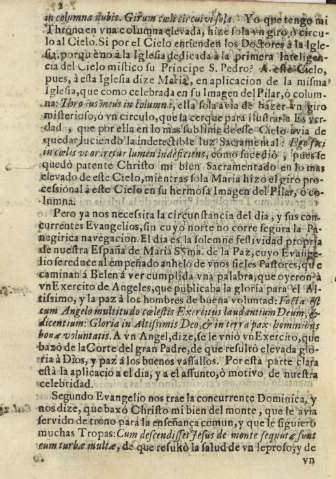 2
in columna nubis. Girum cœli circuivi sola. Yo que tengo mi
Throno en vna columna elevada, hize sola vn giro, ò circu-
lo al Cielo. Si por el Cielo entienden los Doctores à la Igle-
sia, porque no à la Iglesia dedicada à la primera Inteligen
cia del Cielo mistico su Principe S. Pedro? A este Cielo,
pues, à esta Iglesia dize Maria, en aplicacion de la misma
Iglesia, que como celebrada en su Imagen del Pilar, ò colum
na: Thronus meus in columna, ella sola avia de hazer vn giro
misterioso, ò vn circulo, que la cerque para ilustrarla
dad, que por ella en lo mas sublime de esse Cielo avia de
quedar luciendo la indefectible luz Sacramental: Ego feci
in cœlis vt oriretur lumen indeficiens, como sucediò, pues se
quedò patente Christo mi bien Sacramentado en lo mas
elevado de este Cielo, mientras sola Maria hizo el giro pro-
cessional à este Cielo en su hermosa Imagen del Pilar, ò co-
lumna.
Pero ya nos necessita la circunstancia del dia, y sus con-
currentes Evangelios, sin cuyo norte no corre segura la Pa-
negirica navegacion. El dia es la solemne festividad propria
de nuestra España de Maria SSma. de la Paz, cuyo Evange-
lio se reduce al empeñado anhelo de vnos fieles Pastores, que
caminan à Belen à ver cumplida vna palabra, que oyeron à
vn Exercito de Angeles, que publicaba la gloria para el Al-
tissimo, y la paz à los hombres de buena voluntad: Facta est
cum Angelo multitudo cœlestis Exercitus laudantium Deum, &
dicentium: Gloria in Altissimis Deo, & in terra pax hominibus
bonæ voluntatis. A vn Angel, dize, se le vniò vn Exercito, que
baxò de la Corte del gran Padre, de que resultò elevada glo-
ria à Dios, y paz à los buenos vassallos. Por esta parte clara
està la aplicacion al dia, y al assunto, ò motivo de nuestra
celebridad.
Segundo Evangelio nos trae la concurrente Dominica, y
nos dize, que baxò Christo mi bien del monte, que le avia
servido de trono para la enseñança comun, y que le siguierõ
muchas Tropas: Cum descendisset Jesus de monte sequutæ sunt
eum turbæ multæ, de que resultò la salud de vn leproso, y de
vn